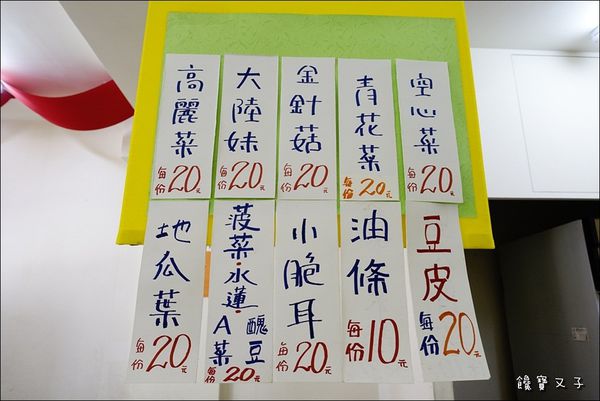 高麗菜
每份20元
大陸妹
每份20元
金針菇
每份20元
青花菜
每份20元
空心菜
每份20元
地瓜葉
每份20元
菠菜·水蓮·A菜
醜豆
每份20元
小脆耳
每份20元
油條
每份10元
豆皮
每份20元
饞寶又子